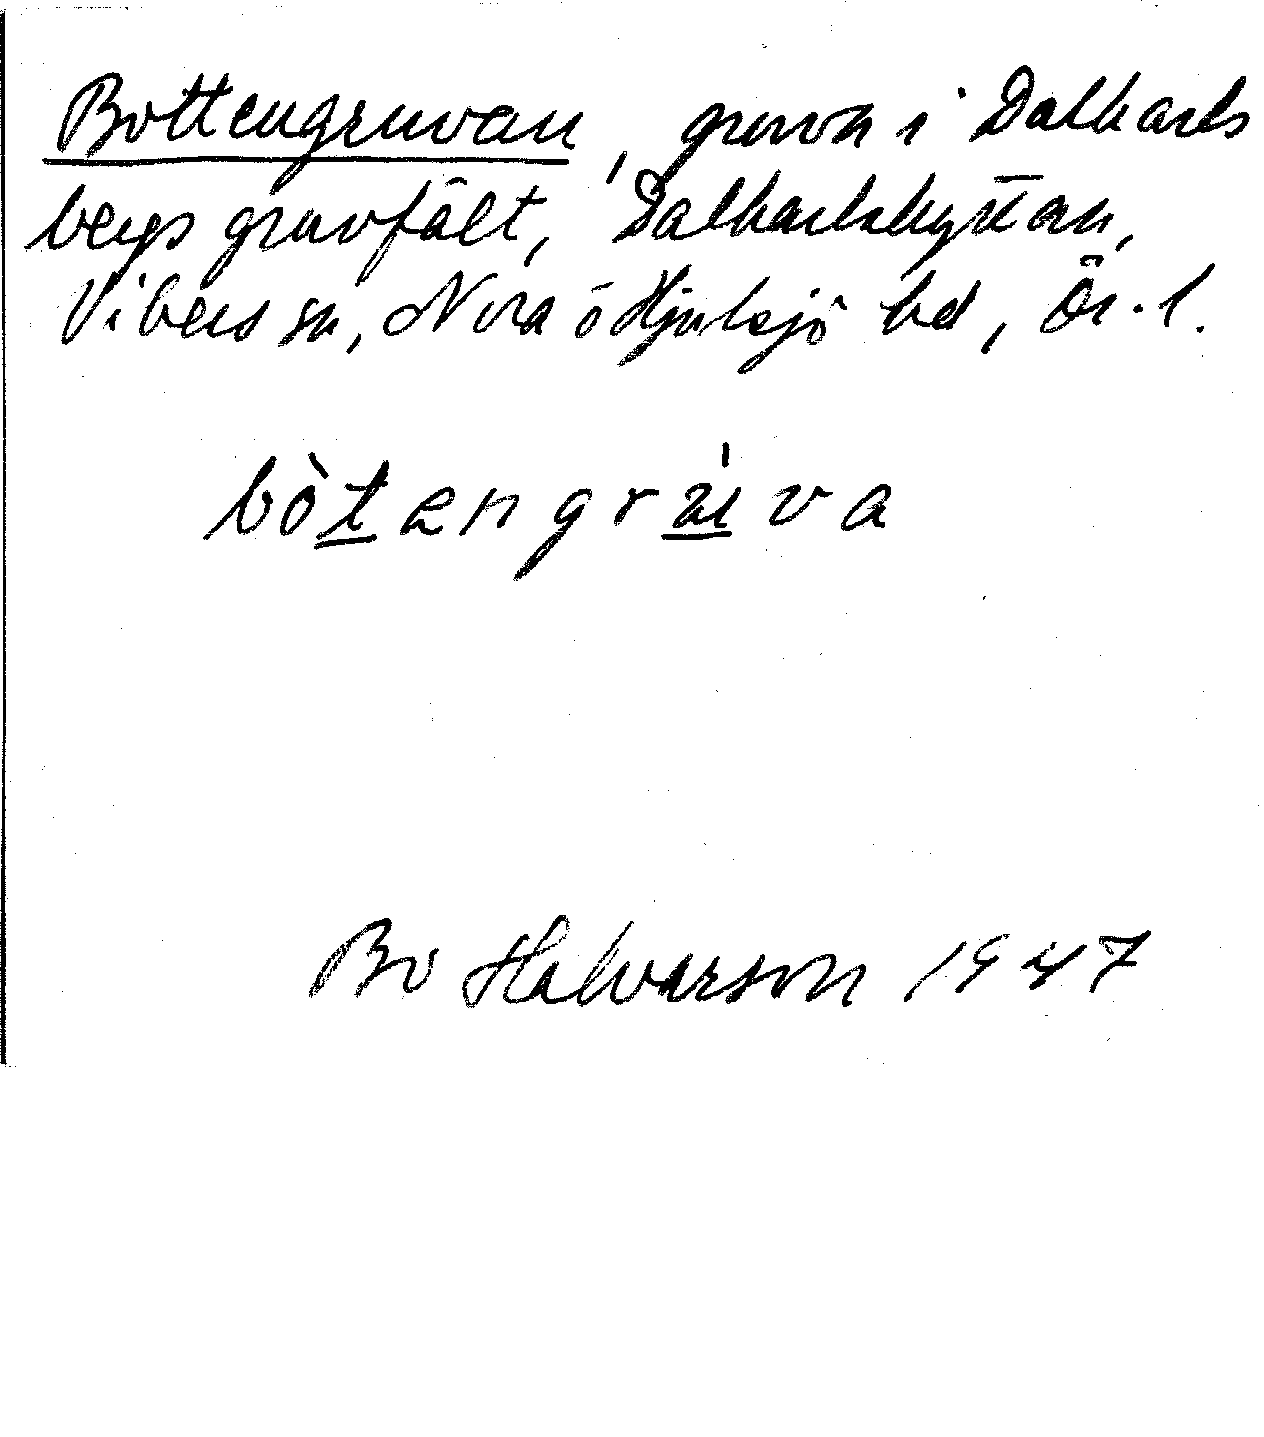 Bottengruvan, gruva i Dalkarls
bergs gruvfält, Dalkarlshyttan,
Vikers sn, Nora o Hjulsjö bd, Ör. l.
bòtengrúva
Bo Halvarson 1947